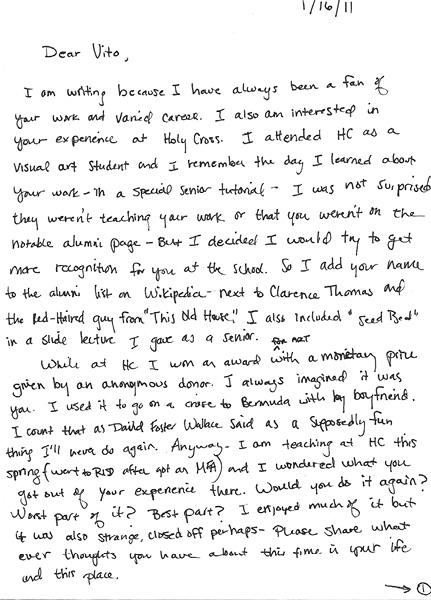 1/16/11
Dear Vito,
I am writing because I have always been a fan of
your work and varied career. I also am interested in
your experience at Holy Cross. I attended HC as a
visual art student and I remember the day I learned about
your work - in a special senior tutorial - I was not surprised
they weren't teaching your work or that you weren't on the
notable alumni page - But I decided I would try to get
more recognition for you at the school. So I add your name
to the alumni list on Wikipedia - next to Clarence Thomas and
the Red-Haired guy from "This Old House". I also included "Seed Bed"
in a slide lecture I gave as a senior.
for art
While at HC I won an award with a monetary prize
given by an anonymous donor. I always imagined it was
you. I used it to go on a cruise to Bermuda with my boyfriend.
I count that as David Foster Wallace said as a supposedly fun
thing I'll never do again. Anyway - I am teaching at HC this
spring (went to RISD after got an MFA) and I wondered what you
got out of your experience there. Would you do it again?
Worst part of it? Best part? I enjoyed much of it but
it was also strange, closed off perhaps - Please share what
ever thoughts you have about this time in your life
and this place.
→ 1